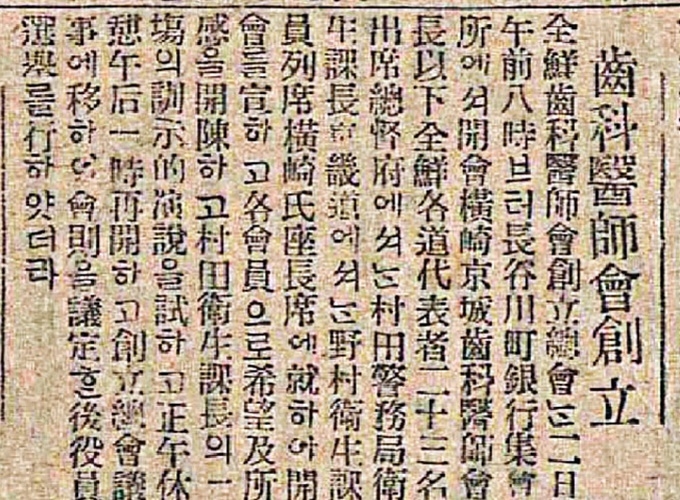 齒科醫師會創立
全鮮齒科醫師會創立總會는二日
午前八時브터長谷川町銀行集會
所에셔開會橫崎京城齒科醫師會
長以下全鮮各道代表者二十三名
出席總督府에셔는村田警務局衛
生課長京畿道에셔는野村衛生課
員列席橫崎氏座長席에就하야開
會를宣하고各會員으로希望及所
感을開陳하고村田衛生課長의一
塲의訓示的演說을試하고正午休
憩午后一時再開하고創立總會議
事에移하야會則을議定한後役員
選擧를行하얏더라